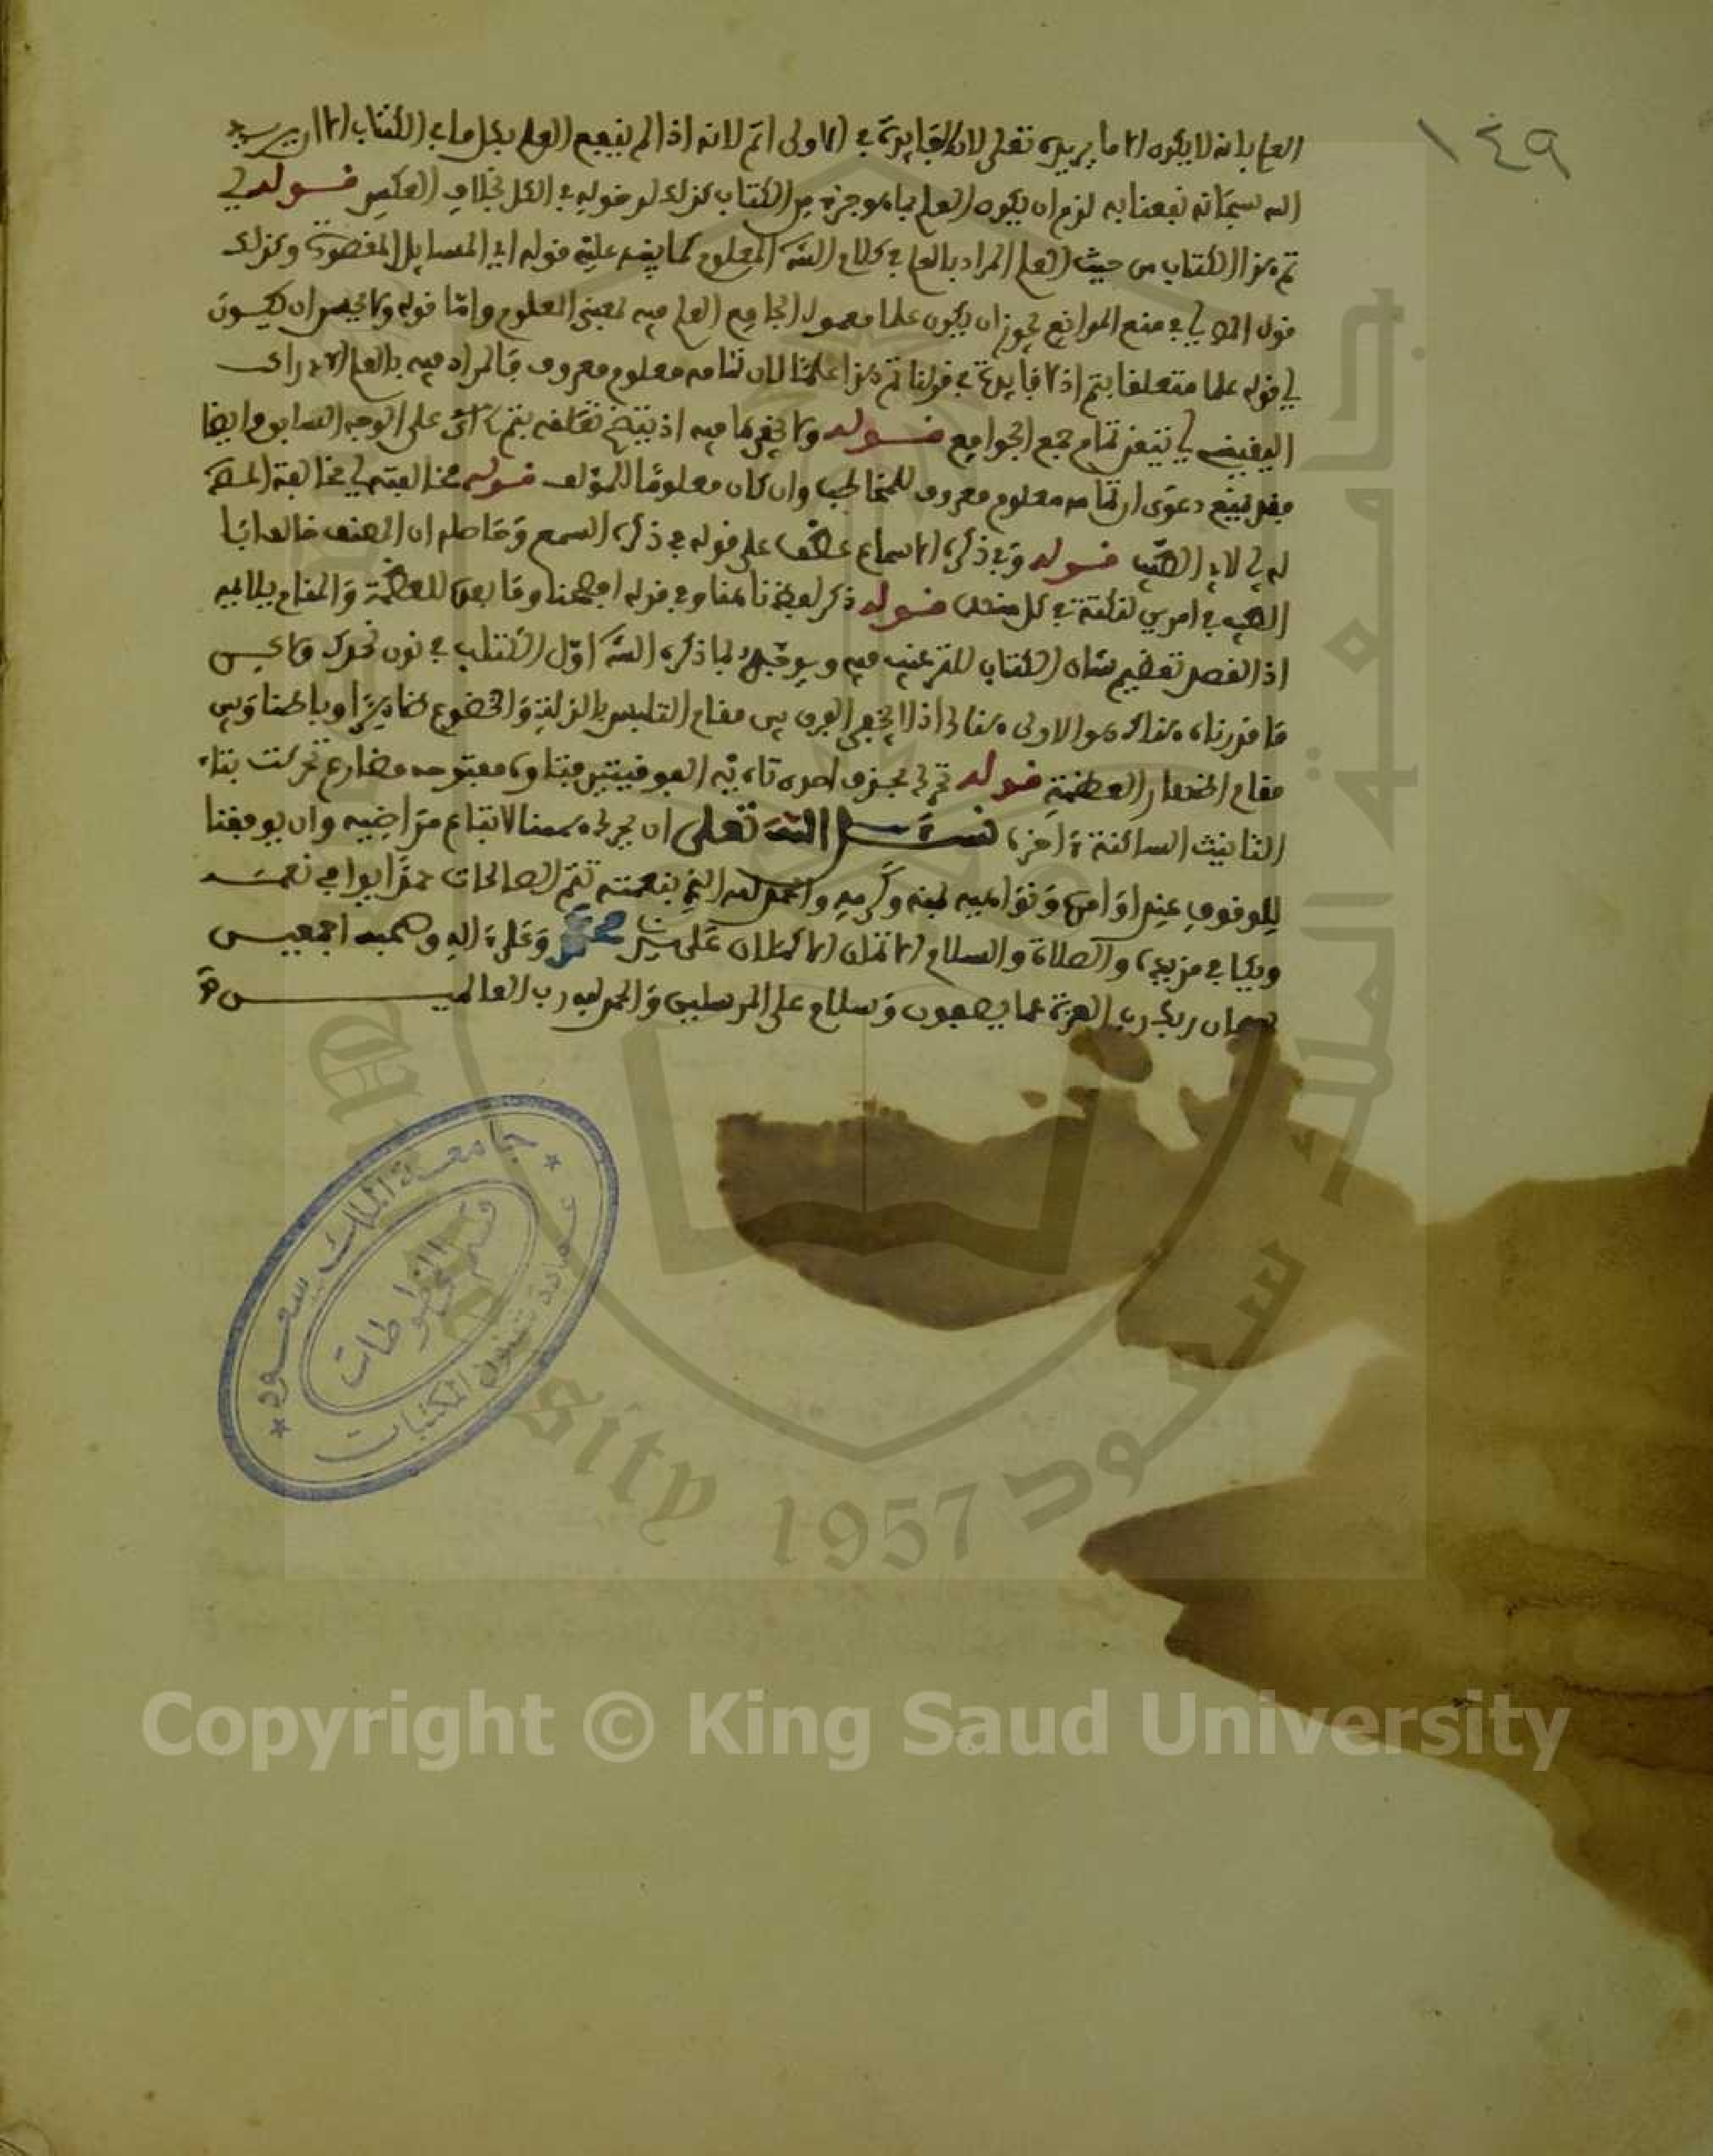 ١٤٩
العلم بانه لا يكون الا ما يريده تعلى لان الفايدة في الاولى اتم لانه اذا لم ينفع العلم بكل ما في الكتاب الا ان يريد
الله سبحانه نفعنا به لزم ان يكون العلم بما هو جزء من الكتاب كذلك لدخوله في الكل بخلاف العكس قوله لي
تم هذا الكتاب من حيث العلم المراد بالعلم في كلام الش المعلوم كما ينبه عليه قوله اي المسايل المقصودة وكذلك
قول في منع الموانع يجوز ان يكون علما معمول الجامع العلم فيه بمعنى العلوم واما قوله ولا يحسن ان يكون
لي قوله علما متعلقا بتم اذ لا فايدة في قولنا تم هذا علمنا لان تمامه معلوم معروف فالمراد فيه بالعلم الادراك
اليقيني لي تيقن تمام جمع الجوامع قوله ولا يخفى ما فيه اذ تعلقه بتم على الوجه السابق وايضا
فقد تمنع دعوى ان تمامه معلوم معروف للمخاطب وان كان معلوما للمؤلف قوله مخالفته لي مخالفة المص
له لي لابي الطيب قوله وفي ذكره الاسماع عطف على قوله في ذكره السمع وحاصله ان المصنف خالف ابا
الطيب في امرين لنكتة في كل منهما قوله ذكر لعظمنا هنا وفي قوله اسمعنا وما بعده للعظمة والمقام يلايمه
اذ القصد تعظيم شان الكتاب للترغيب فيه لما ذكره الش اول الكتاب في نون نحمدك ولا يحسن
ما قررناه هناك هو الاولى هنالك اذ لا يخفى الفرق بين مقام التلبس بالذلة والخضوع ظاهرا وباطنا وبين
مقام اظهار العظمة قوله تحرك بحذف احدى تاءيه الفوقيتين فتاوه مفتوحه مضارع تحركت بتاء
التانيث الساكنة ءاخره نسئل الله تعلى ان يحركهممنا لاتباع مراضيه وان يوفقنا
للوقوف عند اوامره ونواهيه بمنه وكرمه والحمد لله الذي بنعمته تتم الصالحات حمدا يوافي نعمه
ويكافي مزيده والصلاة والسلام الاتمان الاكملان على سيدنا محمد وعلى ءاله وصحبه اجمعين
سبحان ربك رب العزة عما يصفون وسلام على المرسلين والحمد لله رب العالمين
جامعة الملك سعود
عمادة شئون المكتبات
قسم المخطوطات
جامعة الملك سعود
1957
Copyright © King Saud University